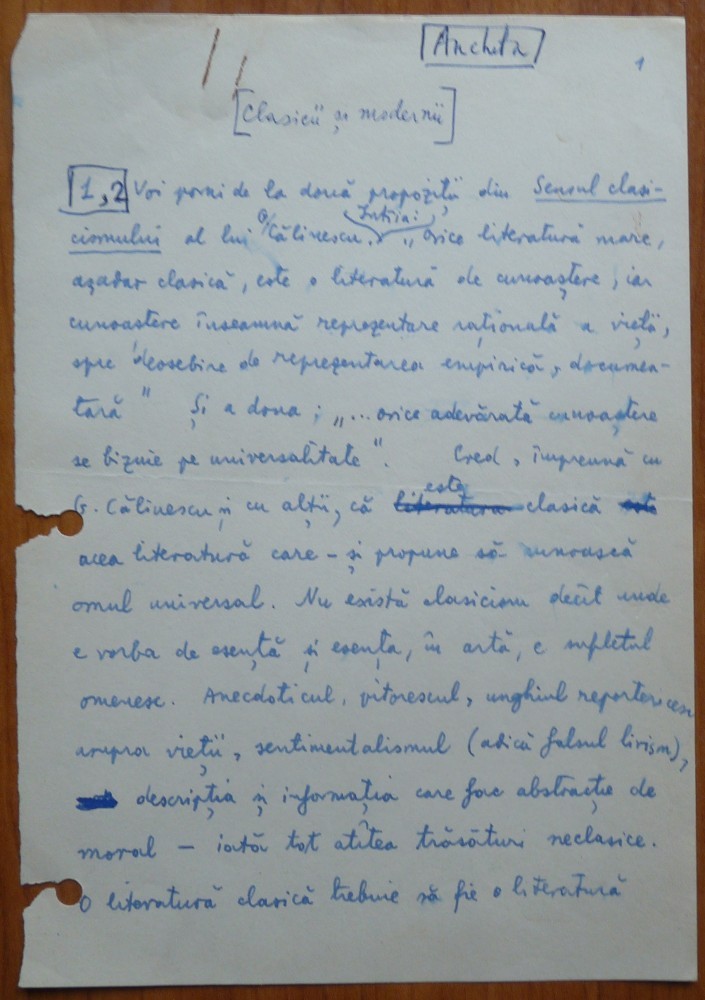 Ancheta
1
[Clasicii și modernii]
1,2 Voi porni de la două propoziții din Sensul clasi-
cismului al lui G. Călinescu. Întîia: „orice literatură mare,
așadar clasică, este o literatură de cunoaștere, iar
cunoaștere înseamnă reprezentare rațională a vieții,
spre deosebire de reprezentarea empirică, documen-
tară" Și a doua: „... orice adevărată cunoaștere
se bizuie pe universalitate". Cred, împreună cu
G. Călinescu și cu alții, că literatura este clasică este
acea literatură care-și propune să cunoască
omul universal. Nu există clasicism decît unde
e vorba de esență și esența, în artă, e sufletul
omenesc. Anecdoticul, pitorescul, unghiul reportericesc
asupra vieții, sentimentalismul (adică falsul lirism),
descripția și informația care fac abstracție de
moral – iată tot atîtea trăsături neclasice.
O literatură clasică trebuie să fie o literatură